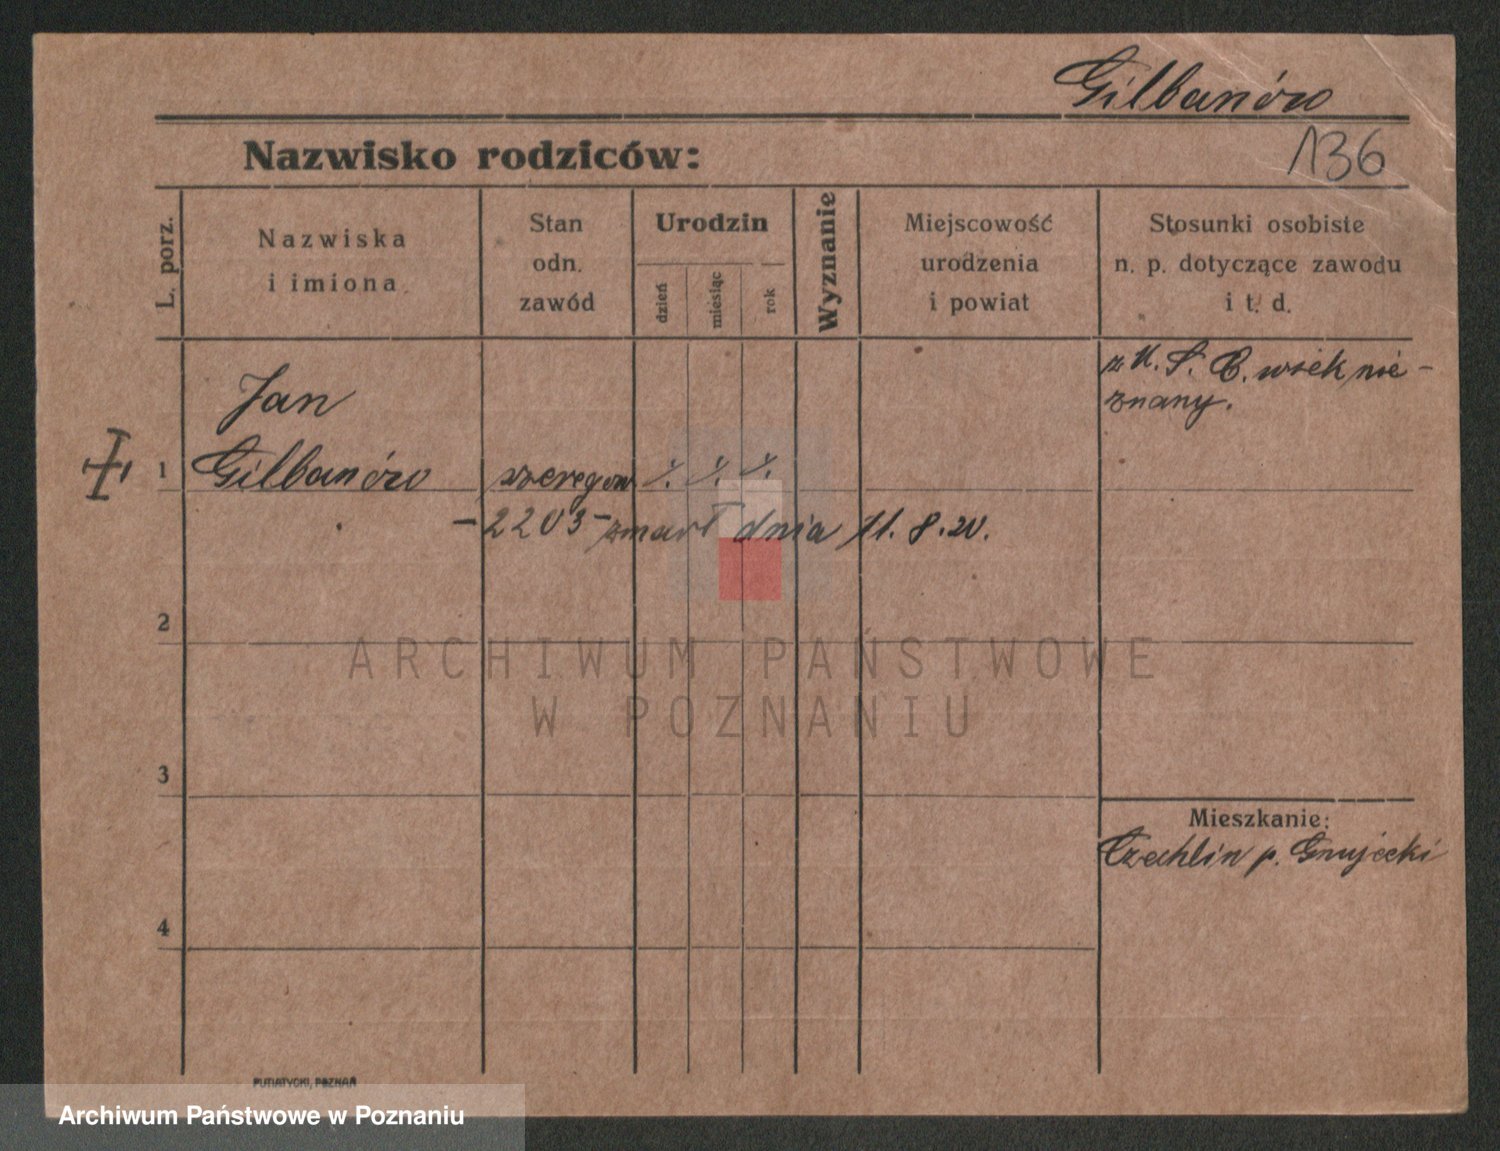 Gilbanów
136
Nazwisko rodziców:
L. porz.
Nazwiska
i imiona
Stan
odn.
zawód
Urodzin
dzień
miesiąc
rok
Wyznanie
Miejscowość
urodzenia
i powiat
Stosunki osobiste
n. p. dotyczące zawodu
i t. d.
z U. S. C. wiek nie-
znany.
Jan
1 Gilbanów szeregow. ./. ./. ./.
-2203- zmarł dnia 11.8.20.
2
ARCHIWUM PAŃSTWOWE
W POZNANIU
3
Mieszkanie:
Czechlin p.
4
PUTIATYCKI, POZNAŃ
Archiwum Państwowe w Poznaniu